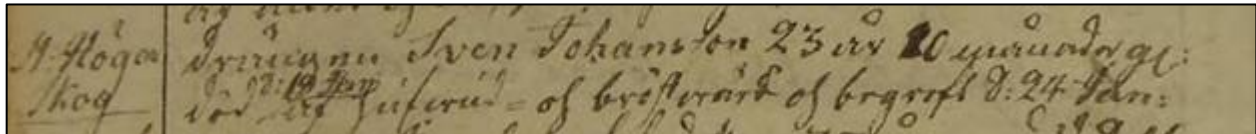 N. Höga drängen Sven Johansson 23 år 10 månader gl:
skog död d: 19 Jan af hufwud- och bröstwärk och begrofs d: 24 Jan: